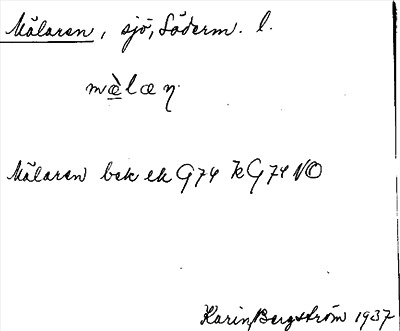 Mälaren, sjö, Söderm. l.
mæ̀læŋ
Mälaren bek ek G74 k G74 NO
Karin Bergström 1937